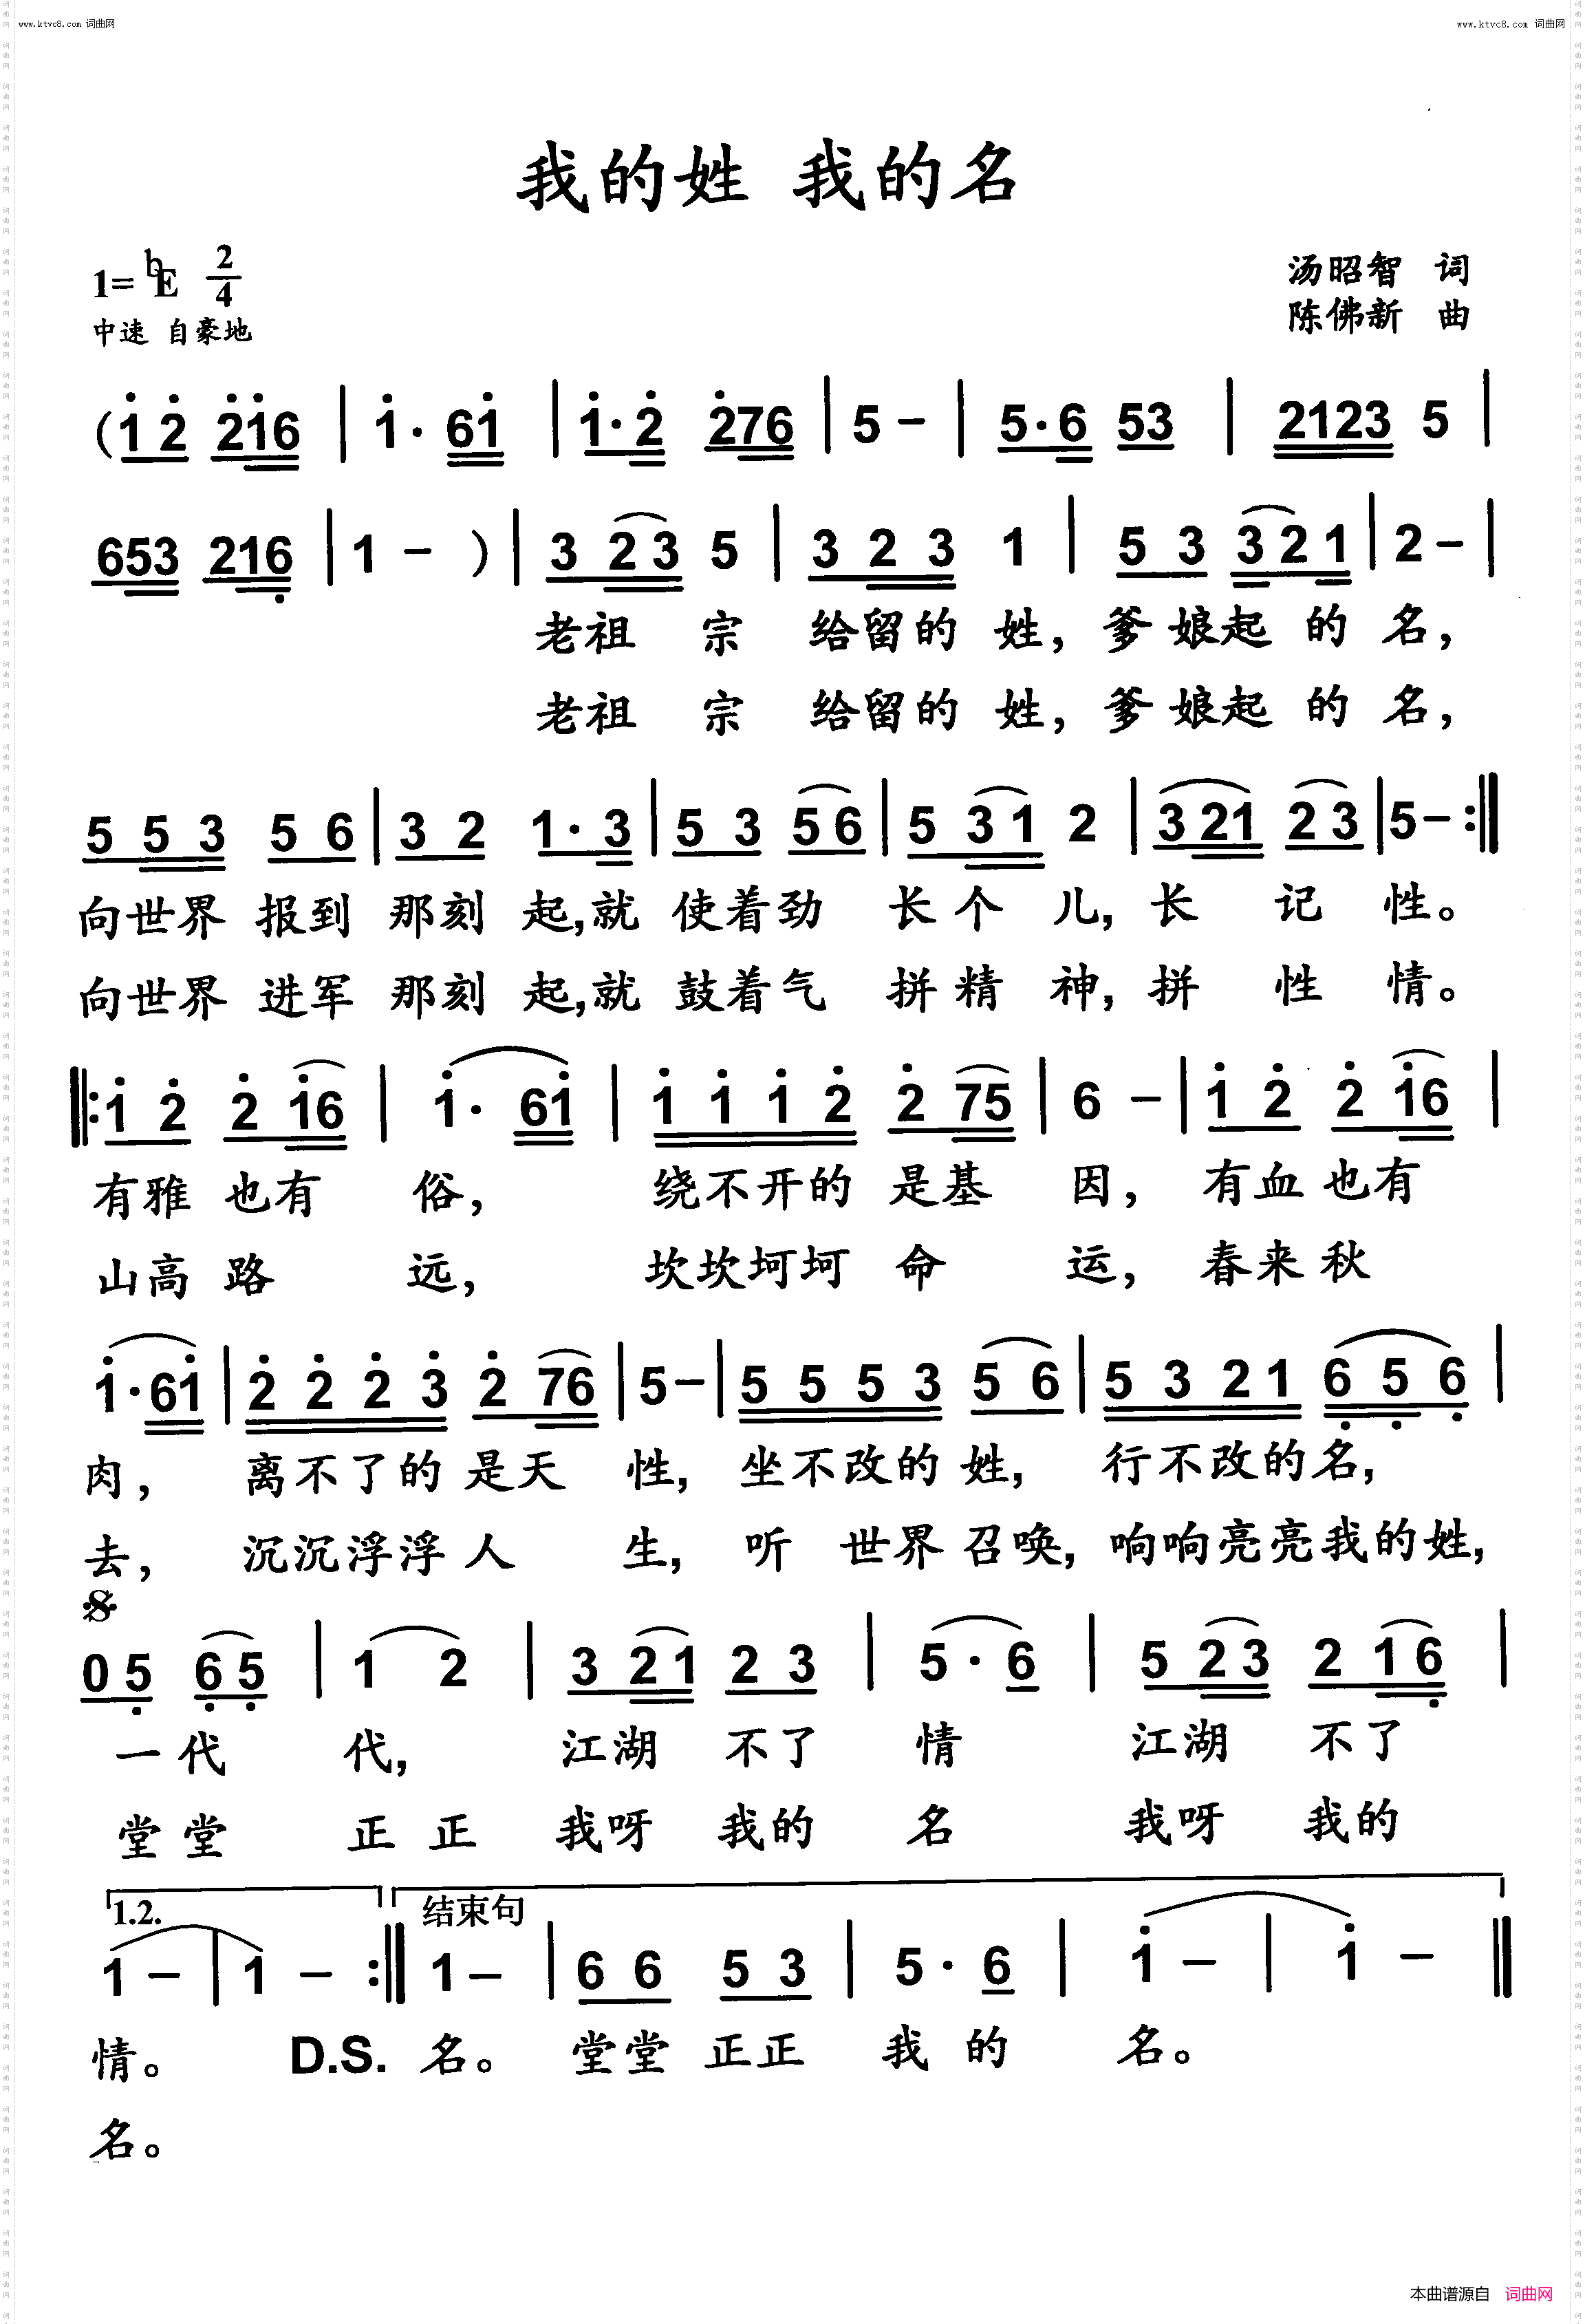 www.ktvc8.com 词曲网 www.ktvc8.com 词曲网
我的姓 我的名
1= bE 2/4 汤昭智 词
中速 自豪地 陈佛新 曲
(1̇ 2̇ 2̇1̇6 | 1̇· 61̇ | 1̇·2̇ 2̇76 | 5 - | 5·6 53 | 2123 5 |
653 216̣ | 1 - ) | 3 2 3 5 | 3 2 3 1 | 5 3 3 2 1 | 2 - |
老祖 宗 给留的 姓, 爹娘起 的 名,
老祖 宗 给留的 姓, 爹娘起 的 名,
5 5 3 5 6 | 3 2 1· 3 | 5 3 5 6 | 5 3 1 2 | 3 21 2 3 | 5 - :‖
向世界 报到 那刻 起,就 使着劲 长个 儿,长 记 性。
向世界 进军 那刻 起,就 鼓着气 拼精 神,拼 性 情。
‖: 1̇ 2̇ 2̇ 1̇6 | 1̇· 61̇ | 1̇ 1̇ 1̇ 2̇ 2̇ 75 | 6 - | 1̇ 2̇ 2̇ 1̇6 |
有雅 也有 俗, 绕不开的 是基 因, 有血也有
山高 路 远, 坎坎坷坷 命 运, 春来秋
1̇·61̇ | 2̇ 2̇ 2̇ 3̇ 2̇ 76 | 5 - | 5 5 5 3 5 6 | 5 3 2 1 6̣ 5̣ 6̣ |
肉, 离不了的 是天 性, 坐不改的 姓, 行不改的名,
去, 沉沉浮浮 人 生, 听 世界 召唤, 响响亮亮我的姓,
𝄋
0 5̣ 6̣ 5̣ | 1 2 | 3 2 1 2 3 | 5 · 6 | 5 2 3 2 1 6̣ |
一代 代, 江湖 不了 情 江湖 不了
堂堂 正正 我呀 我的 名 我呀 我的
1.2. 结束句
1 - | 1 - :‖ 1 - | 6 6 5 3 | 5 · 6 | 1̇ - | 1̇ - ‖
情。 D.S. 名。 堂堂 正正 我 的 名。
名。
本曲谱源自 词曲网